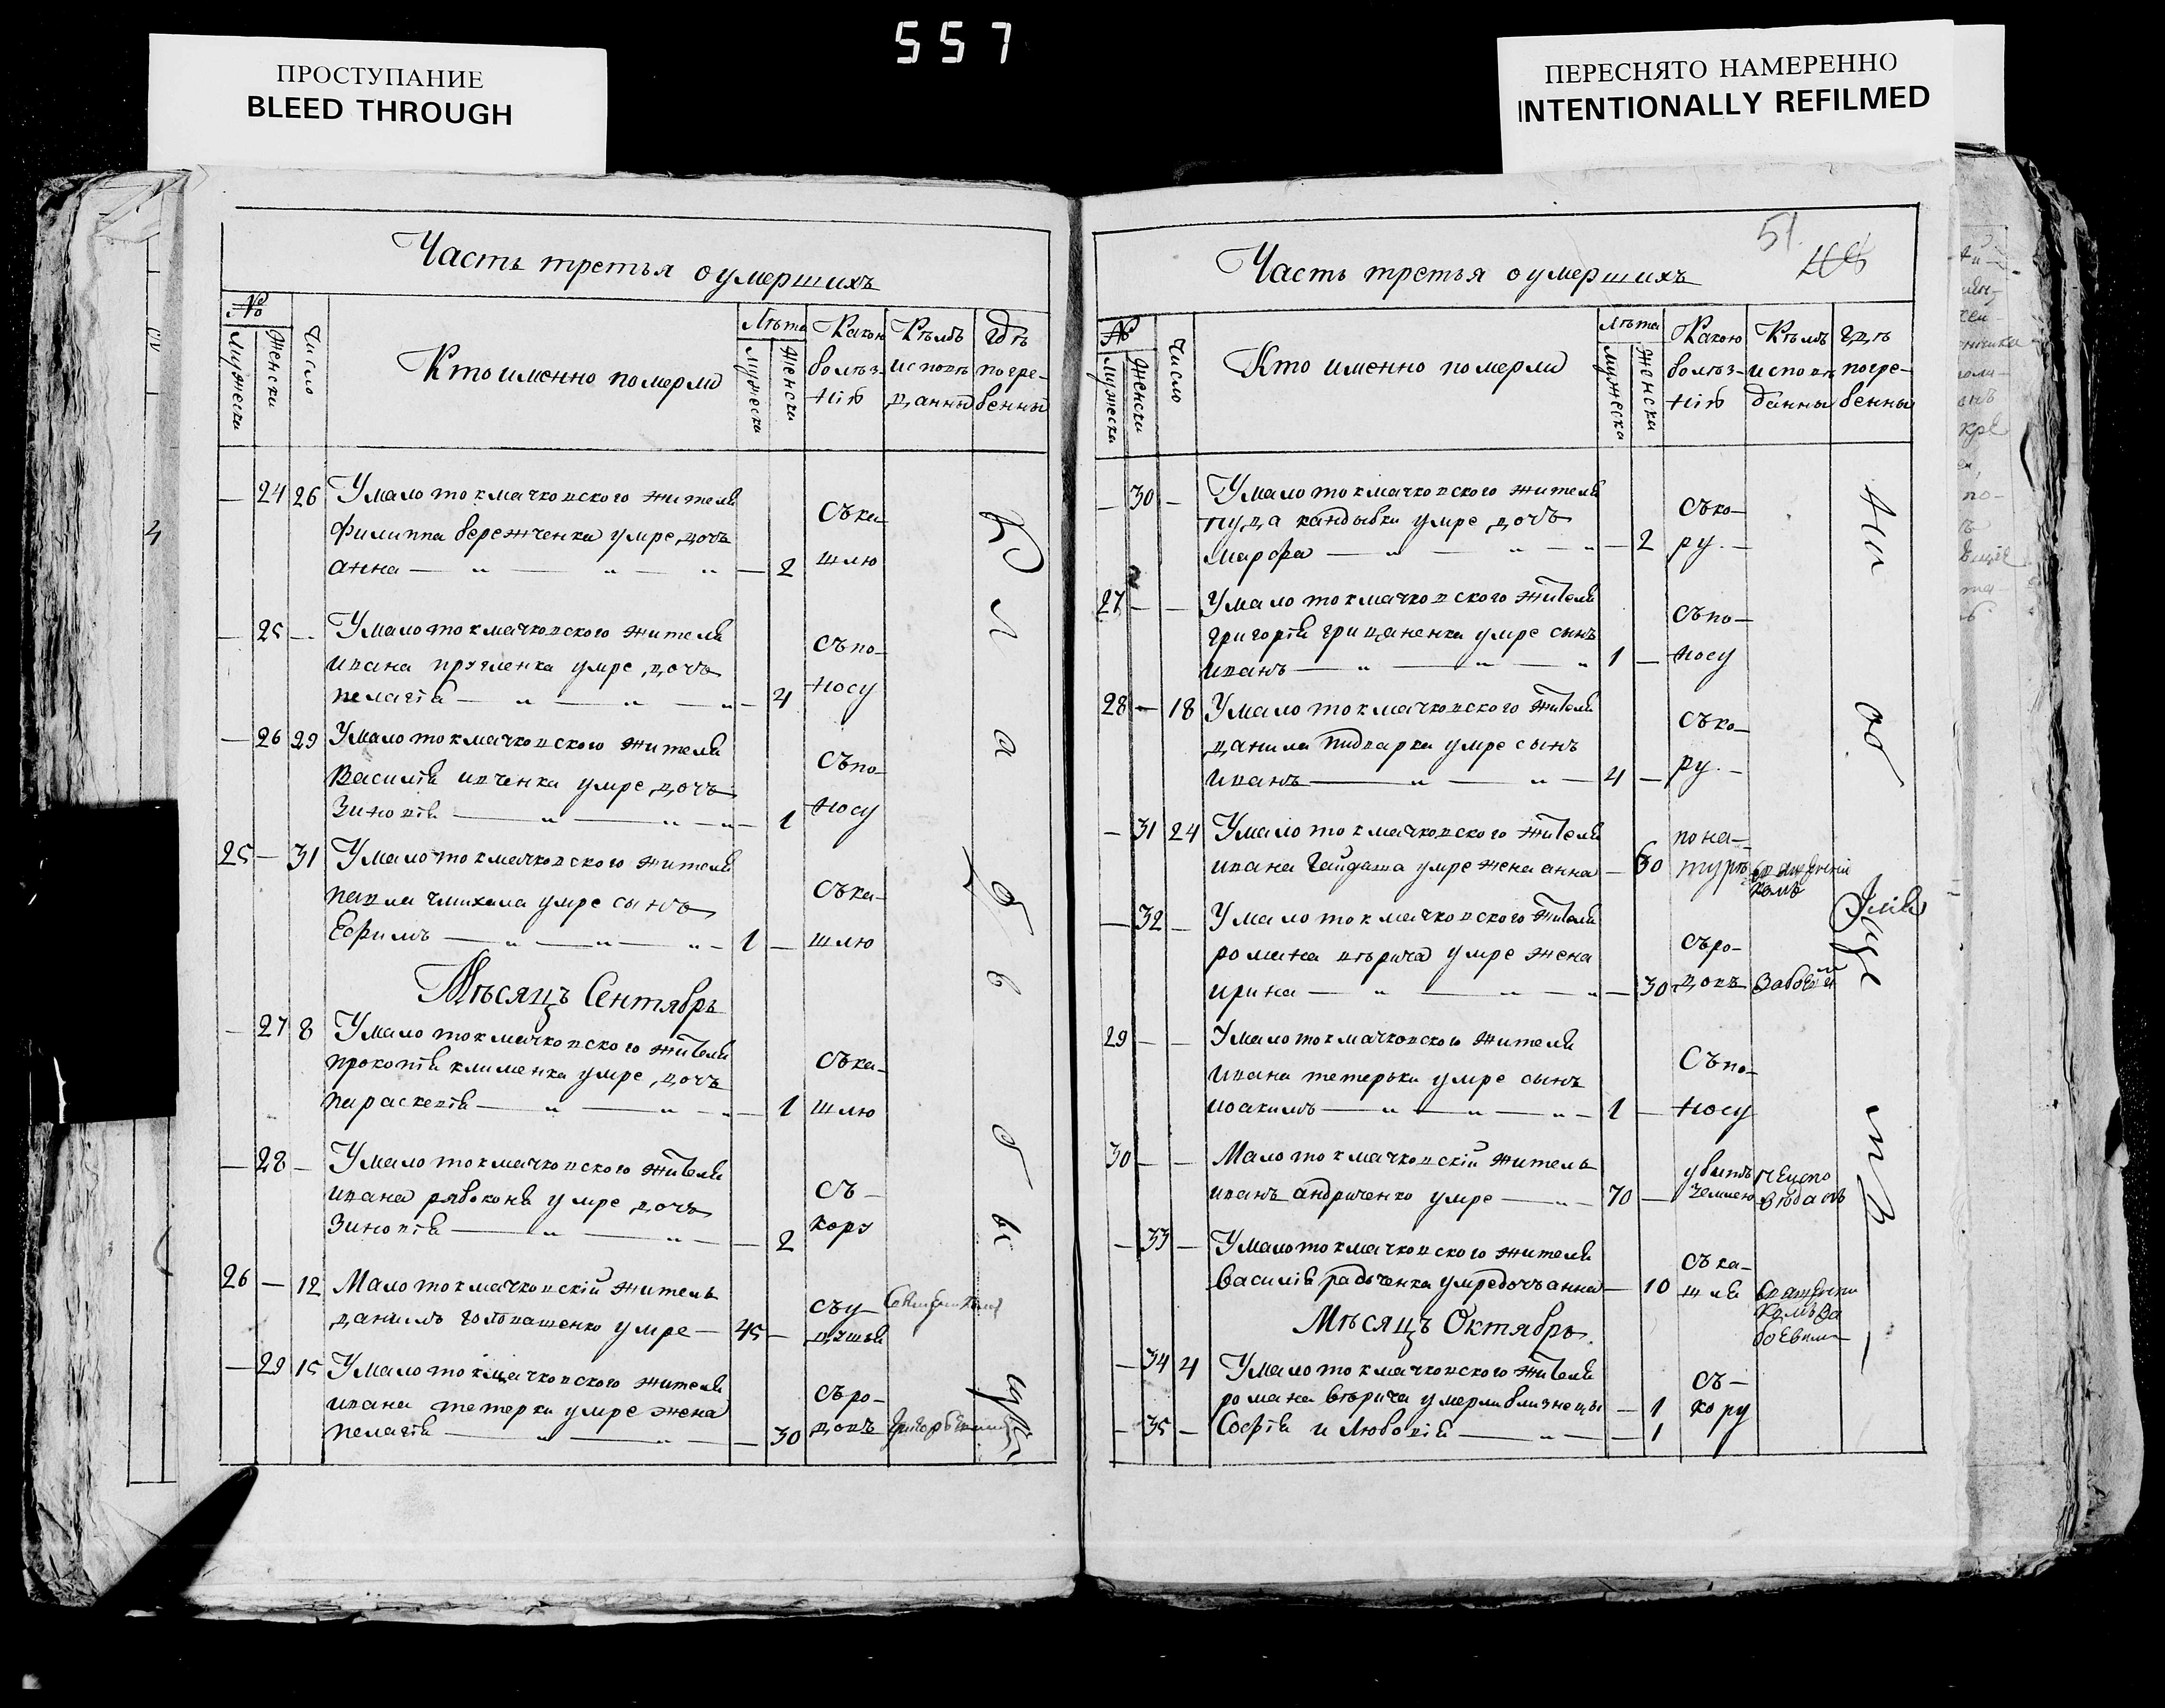 557
ПРОСТУПАНИЕ
BLEED THROUGH
ПЕРЕСНЯТО НАМЕРЕННО
INTENTIONALLY REFILMED
Часть третья о умершихъ
№
Мужеска
Женски
Число
Кто именно померли
Лѣта
Мужеска
Женски
Какою болѣз-нію
Кѣмъ исповѣ-данны
Гдѣ погре-бенны
— 24 26 Умало токмачковского жителя
филиппа бережченка умре дочь
анна — 2
Съка-шлю
— 25 — Умало токмачковского жителя
ивана пругленка умре дочь
пелагія — 4
Съпо-носу
— 26 29 Умало токмачковского жителя
Василія ивченка умре дочь
Зиновія — 1
Съпо-носу
25 — 31 Умало токмачковского жителя
павла чмихала умре сынъ
Ефимъ 1 —
Съка-шлю
Мѣсяцъ Сентябрь
— 27 8 Умало токмачковского жителя
прокопія клименка умре дочь
параскевія — 1
Съка-шлю
— 28 — Умало токмачковского жителя
ивана рябоконя умре дочь
Зиновія — 2
Съ-кору
26 — 12 Мало токмачковскій житель
данилъ голопашенко умре 45 —
Съу-душья
— 29 15 Умало токмачковского жителя
ивана тетерки умре жена
пелагія — 30
Съро-довъ
На
кла
Часть третья о умершихъ
51
№
Мужеска
Женски
Число
Кто именно померли
Лѣта
Мужеска
Женска
Какою болѣз-нію
Кѣмъ исповѣ-данны
Гдѣ погре-бенны
— 30 — Умало токмачковского жителя
пуда кандыбки умре дочь
Марфа — 2
Съко-ру
27 — — Умало токмачковского жителя
григорія грицаненка умре сынъ
иванъ 1 —
Съпо-носу
28 — 18 Умало токмачковского жителя
данила пидпарка умре сынъ
иванъ 4 —
Съко-ру
— 31 24 Умало токмачковского жителя
ивана Гайдаша умре жена анна — 60
пона-турѣ
— 32 — Умало токмачковского жителя
романа втърича умре жена
ирина — 30
Съро-довъ
29 — — Умало токмачковского жителя
ивана тетерьки умре сынъ
иоакимъ 1 —
Съпо-носу
30 — — Мало токмачковскій житель
иванъ андриченко умре 70 —
убитъ землею
— 33 — Умало токмачковского жителя
василія радченка умре дочь анна — 10
Съка-шля
Мѣсяцъ Октябрь
— 34 4 Умало токмачковского жителя
романа втърича умерли близнецы — 1
— 35 — Софія и Любовія — 1
Съ-кору